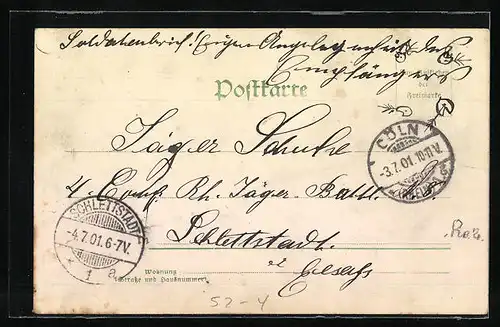 Soldatenbrief. Eigene Angelegenheit des
Empfängers
Postkarte
der
Freimarke
Jäger Schulze
CÖLN
-3.7.01.10-11V.
4. Comp. Rh. Jäger-Batl.
SCHLETTSTADT
-4.7.01.6-7V.
* 1 a
Schlettstadt
Elsaß
Wohnung
(Straße und Hausnummer)
52-4